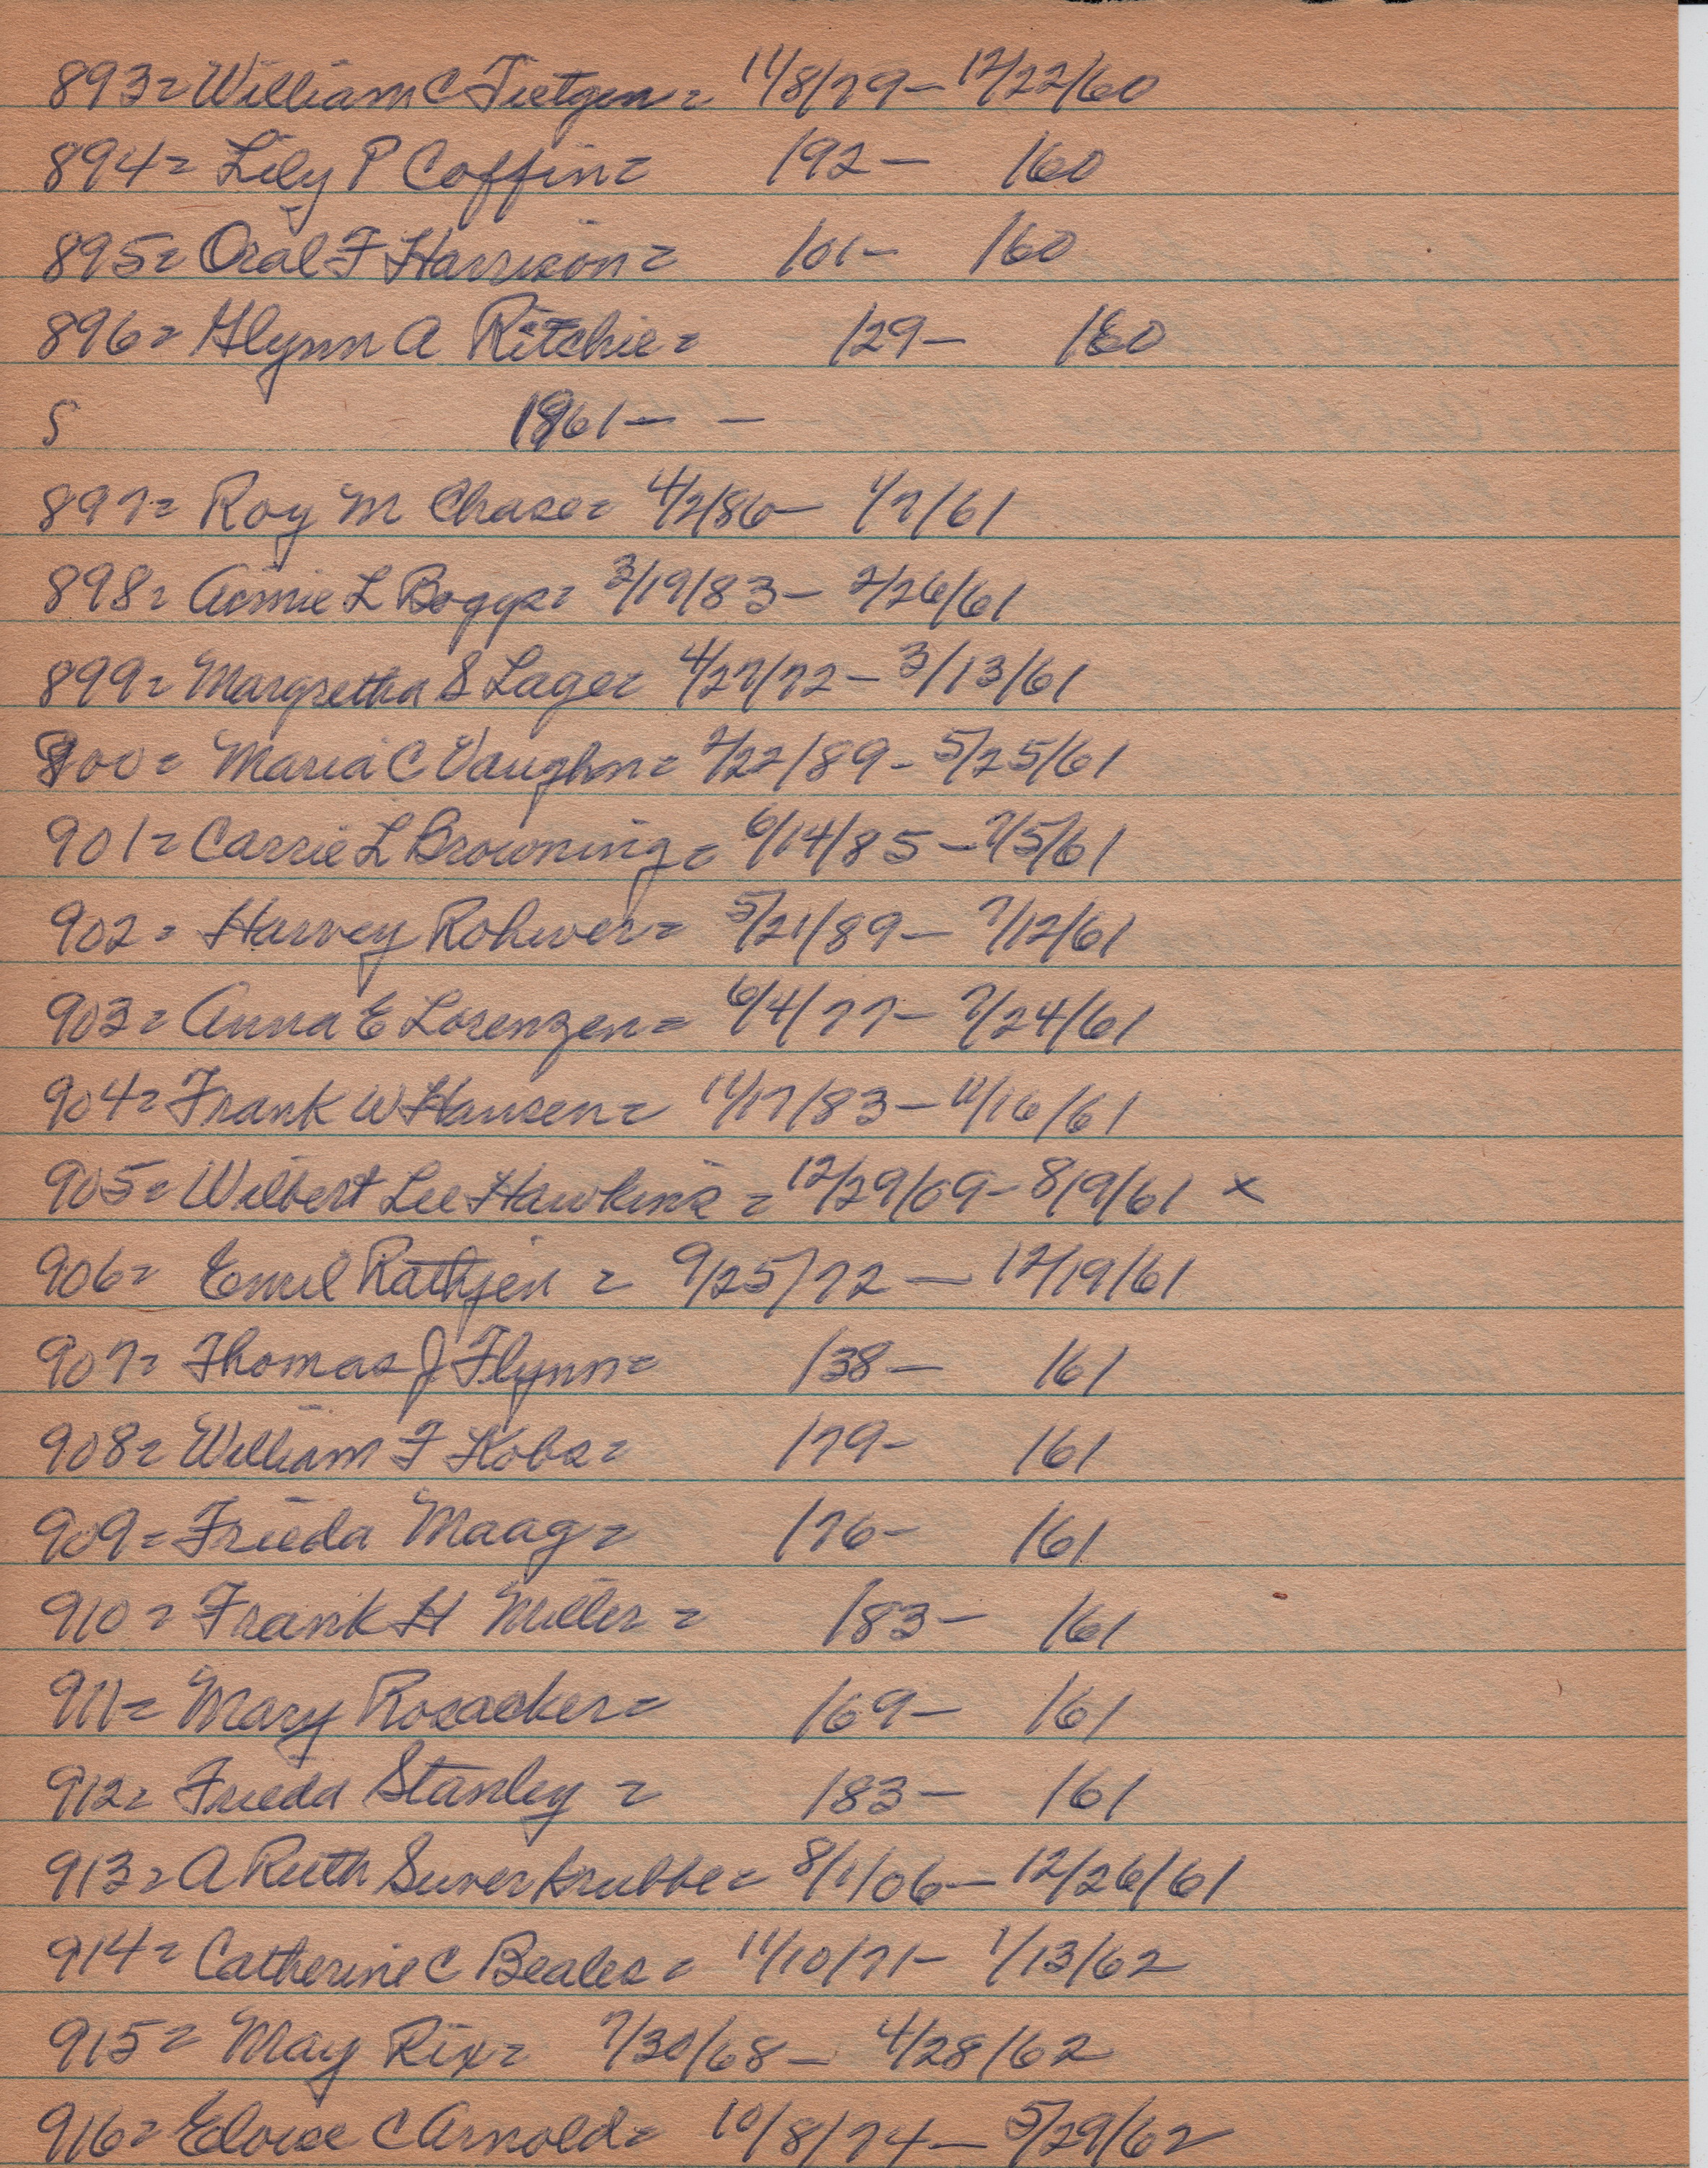 893= William C Tietgen= 11/8/79- 12/22/60
894= Lily P Coffin= /92- /60
895= Oral F Harrison= /01- /60
896= Glynn A Ritchie= /29- /60
S 1961- -
897= Roy M Chase= 4/2/86- 1/7/61
898= Annie L Boggs= 3/19/83- 2/26/61
899= Margretha S Lage= 4/27/72- 3/13/61
900= Maria C Vaughn= 2/22/89- 5/25/61
901= Carrie L Browning= 6/14/85- 7/5/61
902= Harvey Rohwer= 5/21/89- 7/12/61
903= Anna E Lorenzen= 6/4/77- 7/24/61
904= Frank W Hansen= 11/17/83- 11/16/61
905= Wilbert Lee Hawkins= 12/29/09- 8/9/61 x
906= Emil Rathjen = 9/25/72- 12/19/61
907= Thomas J Flynn= /38- /61
908= William F Kobs= /79- /61
909= Frieda Maag= /76- /61
910= Frank H Miller= /83- /61
911= Mary Rosacker= /69- /61
912= Frieda Stanley = /83- /61
913= A Ruth Suverkrubbe= 8/1/06- 12/26/61
914= Catherine C Beales= 11/10/71- 1/13/62
915= May Rix= 7/30/68- 4/28/62
916= Eloise C Arnold= 10/8/74- 5/29/62